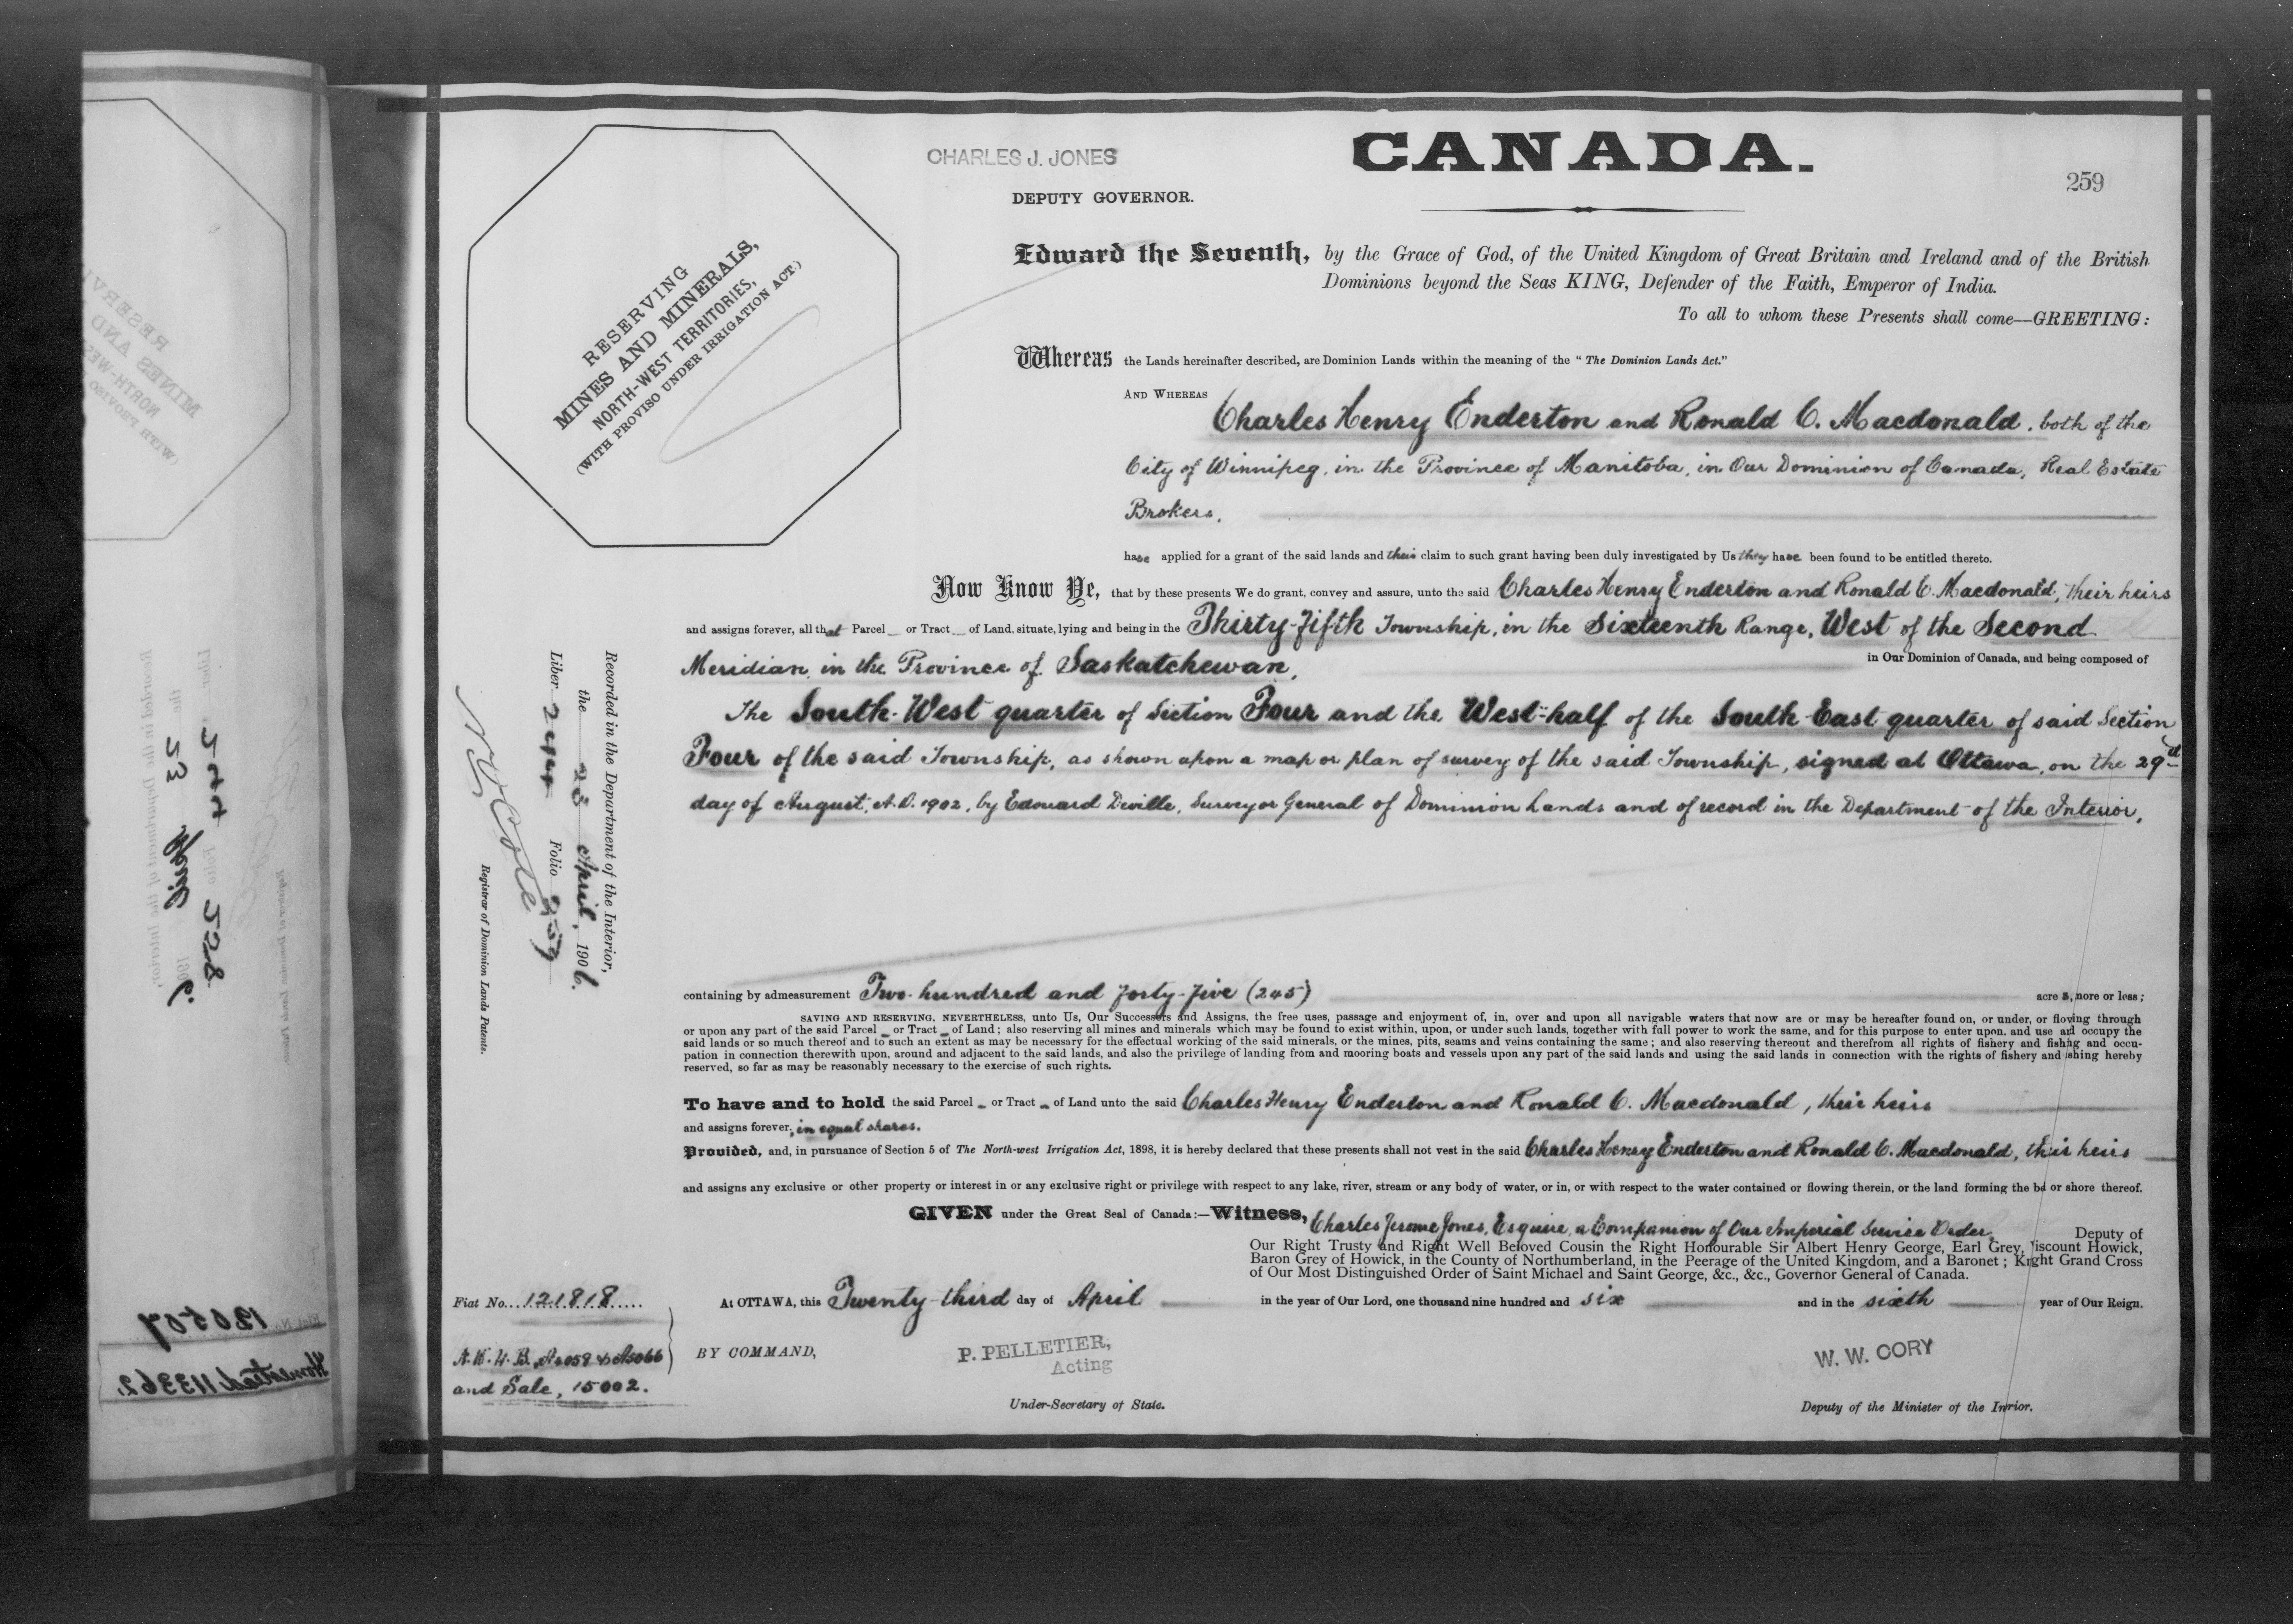 CHARLES J. JONES
CANADA.
259
DEPUTY GOVERNOR.
RESERVING
MINES AND MINERALS,
NORTH-WEST TERRITORIES,
(WITH PROVISO UNDER IRRIGATION ACT.)
Edward the Seventh, by the Grace of God, of the United Kingdom of Great Britain and Ireland and of the British
Dominions beyond the Seas KING, Defender of the Faith, Emperor of India.
To all to whom these Presents shall come—GREETING:
Whereas the Lands hereinafter described, are Dominion Lands within the meaning of the "The Dominion Lands Act."
AND WHEREAS
Charles Henry Enderton and Ronald C. Macdonald, both of the
City of Winnipeg, in the Province of Manitoba, in Our Dominion of Canada, Real Estate
Brokers,
have applied for a grant of the said lands and their claim to such grant having been duly investigated by Us they have been found to be entitled thereto.
Now Know Ye, that by these presents We do grant, convey and assure, unto the said Charles Henry Enderton and Ronald C. Macdonald, their heirs
and assigns forever, all that Parcel or Tract of Land, situate, lying and being in the Thirty-fifth Township, in the Sixteenth Range, West of the Second
Meridian, in the Province of Saskatchewan, in Our Dominion of Canada, and being composed of
The South-West quarter of Section Four and the West-half of the South-East quarter of said Section
Four of the said Township, as shown upon a map or plan of survey of the said Township, signed at Ottawa, on the 29th
day of August, A.D. 1902, by Edouard Deville, Surveyor General of Dominion Lands and of record in the Department of the Interior,
Recorded in the Department of the Interior,
the 23 April, 1906.
Liber 244 Folio 259
Registrar of Dominion Lands Patents.
containing by admeasurement Two hundred and forty-five (245) acres, more or less;
SAVING AND RESERVING, NEVERTHELESS, unto Us, Our Successors and Assigns, the free uses, passage and enjoyment of, in, over and upon all navigable waters that now are or may be hereafter found on, or under, or flowing through
or upon any part of the said Parcel or Tract of Land; also reserving all mines and minerals which may be found to exist within, upon, or under such lands, together with full power to work the same, and for this purpose to enter upon, and use and occupy the
said lands or so much thereof and to such an extent as may be necessary for the effectual working of the said minerals, or the mines, pits, seams and veins containing the same; and also reserving thereout and therefrom all rights of fishery and fishing and occu-
pation in connection therewith upon, around and adjacent to the said lands, and also the privilege of landing from and mooring boats and vessels upon any part of the said lands and using the said lands in connection with the rights of fishery and fishing hereby
reserved, so far as may be reasonably necessary to the exercise of such rights.
To have and to hold the said Parcel or Tract of Land unto the said Charles Henry Enderton and Ronald C. Macdonald, their heirs
and assigns forever, in equal shares.
Provided, and, in pursuance of Section 5 of The North-west Irrigation Act, 1898, it is hereby declared that these presents shall not vest in the said Charles Henry Enderton and Ronald C. Macdonald, their heirs
and assigns any exclusive or other property or interest in or any exclusive right or privilege with respect to any lake, river, stream or any body of water, or in, or with respect to the water contained or flowing therein, or the land forming the bed or shore thereof.
GIVEN under the Great Seal of Canada:—Witness, Charles Jerome Jones, Esquire, a Companion of Our Imperial Service Order, Deputy of
Our Right Trusty and Right Well Beloved Cousin the Right Honourable Sir Albert Henry George, Earl Grey, Viscount Howick,
Baron Grey of Howick, in the County of Northumberland, in the Peerage of the United Kingdom, and a Baronet; Knight Grand Cross
of Our Most Distinguished Order of Saint Michael and Saint George, &c., &c., Governor General of Canada.
Fiat No. 121818
At OTTAWA, this Twenty-third day of April in the year of Our Lord, one thousand nine hundred and six and in the sixth year of Our Reign.
BY COMMAND,
P. PELLETIER,
Acting
W. W. CORY
and Sale, 15002.
Under-Secretary of State.
Deputy of the Minister of the Interior.